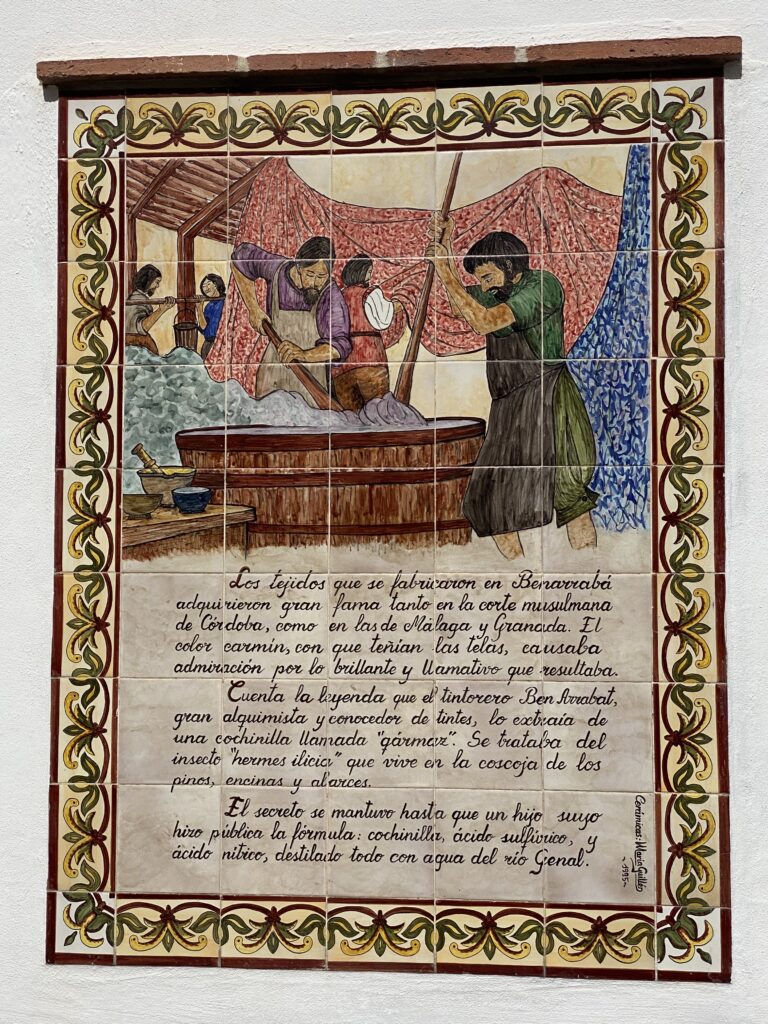 Los tejidos que se fabricaron en Benarrabá
adquirieron gran fama tanto en la corte musulmana
de Córdoba, como en las de Málaga y Granada. El
color carmín, con que teñían las telas, causaba
admiración por lo brillante y llamativo que resultaba.
Cuenta la leyenda que el tintorero Ben Arrabat,
gran alquimista y conocedor de tintes, lo extraía de
una cochinilla llamada "gármaz". Se trataba del
insecto "hermes ilicia" que vive en la coscoja de los
pinos, encinas y alarces.
El secreto se mantuvo hasta que un hijo suyo
hizo pública la fórmula: cochinilla, ácido sulfúrico, y
ácido nítrico, destilado todo con agua del río Genal.
Cerámicas: María Guillén
~1995~